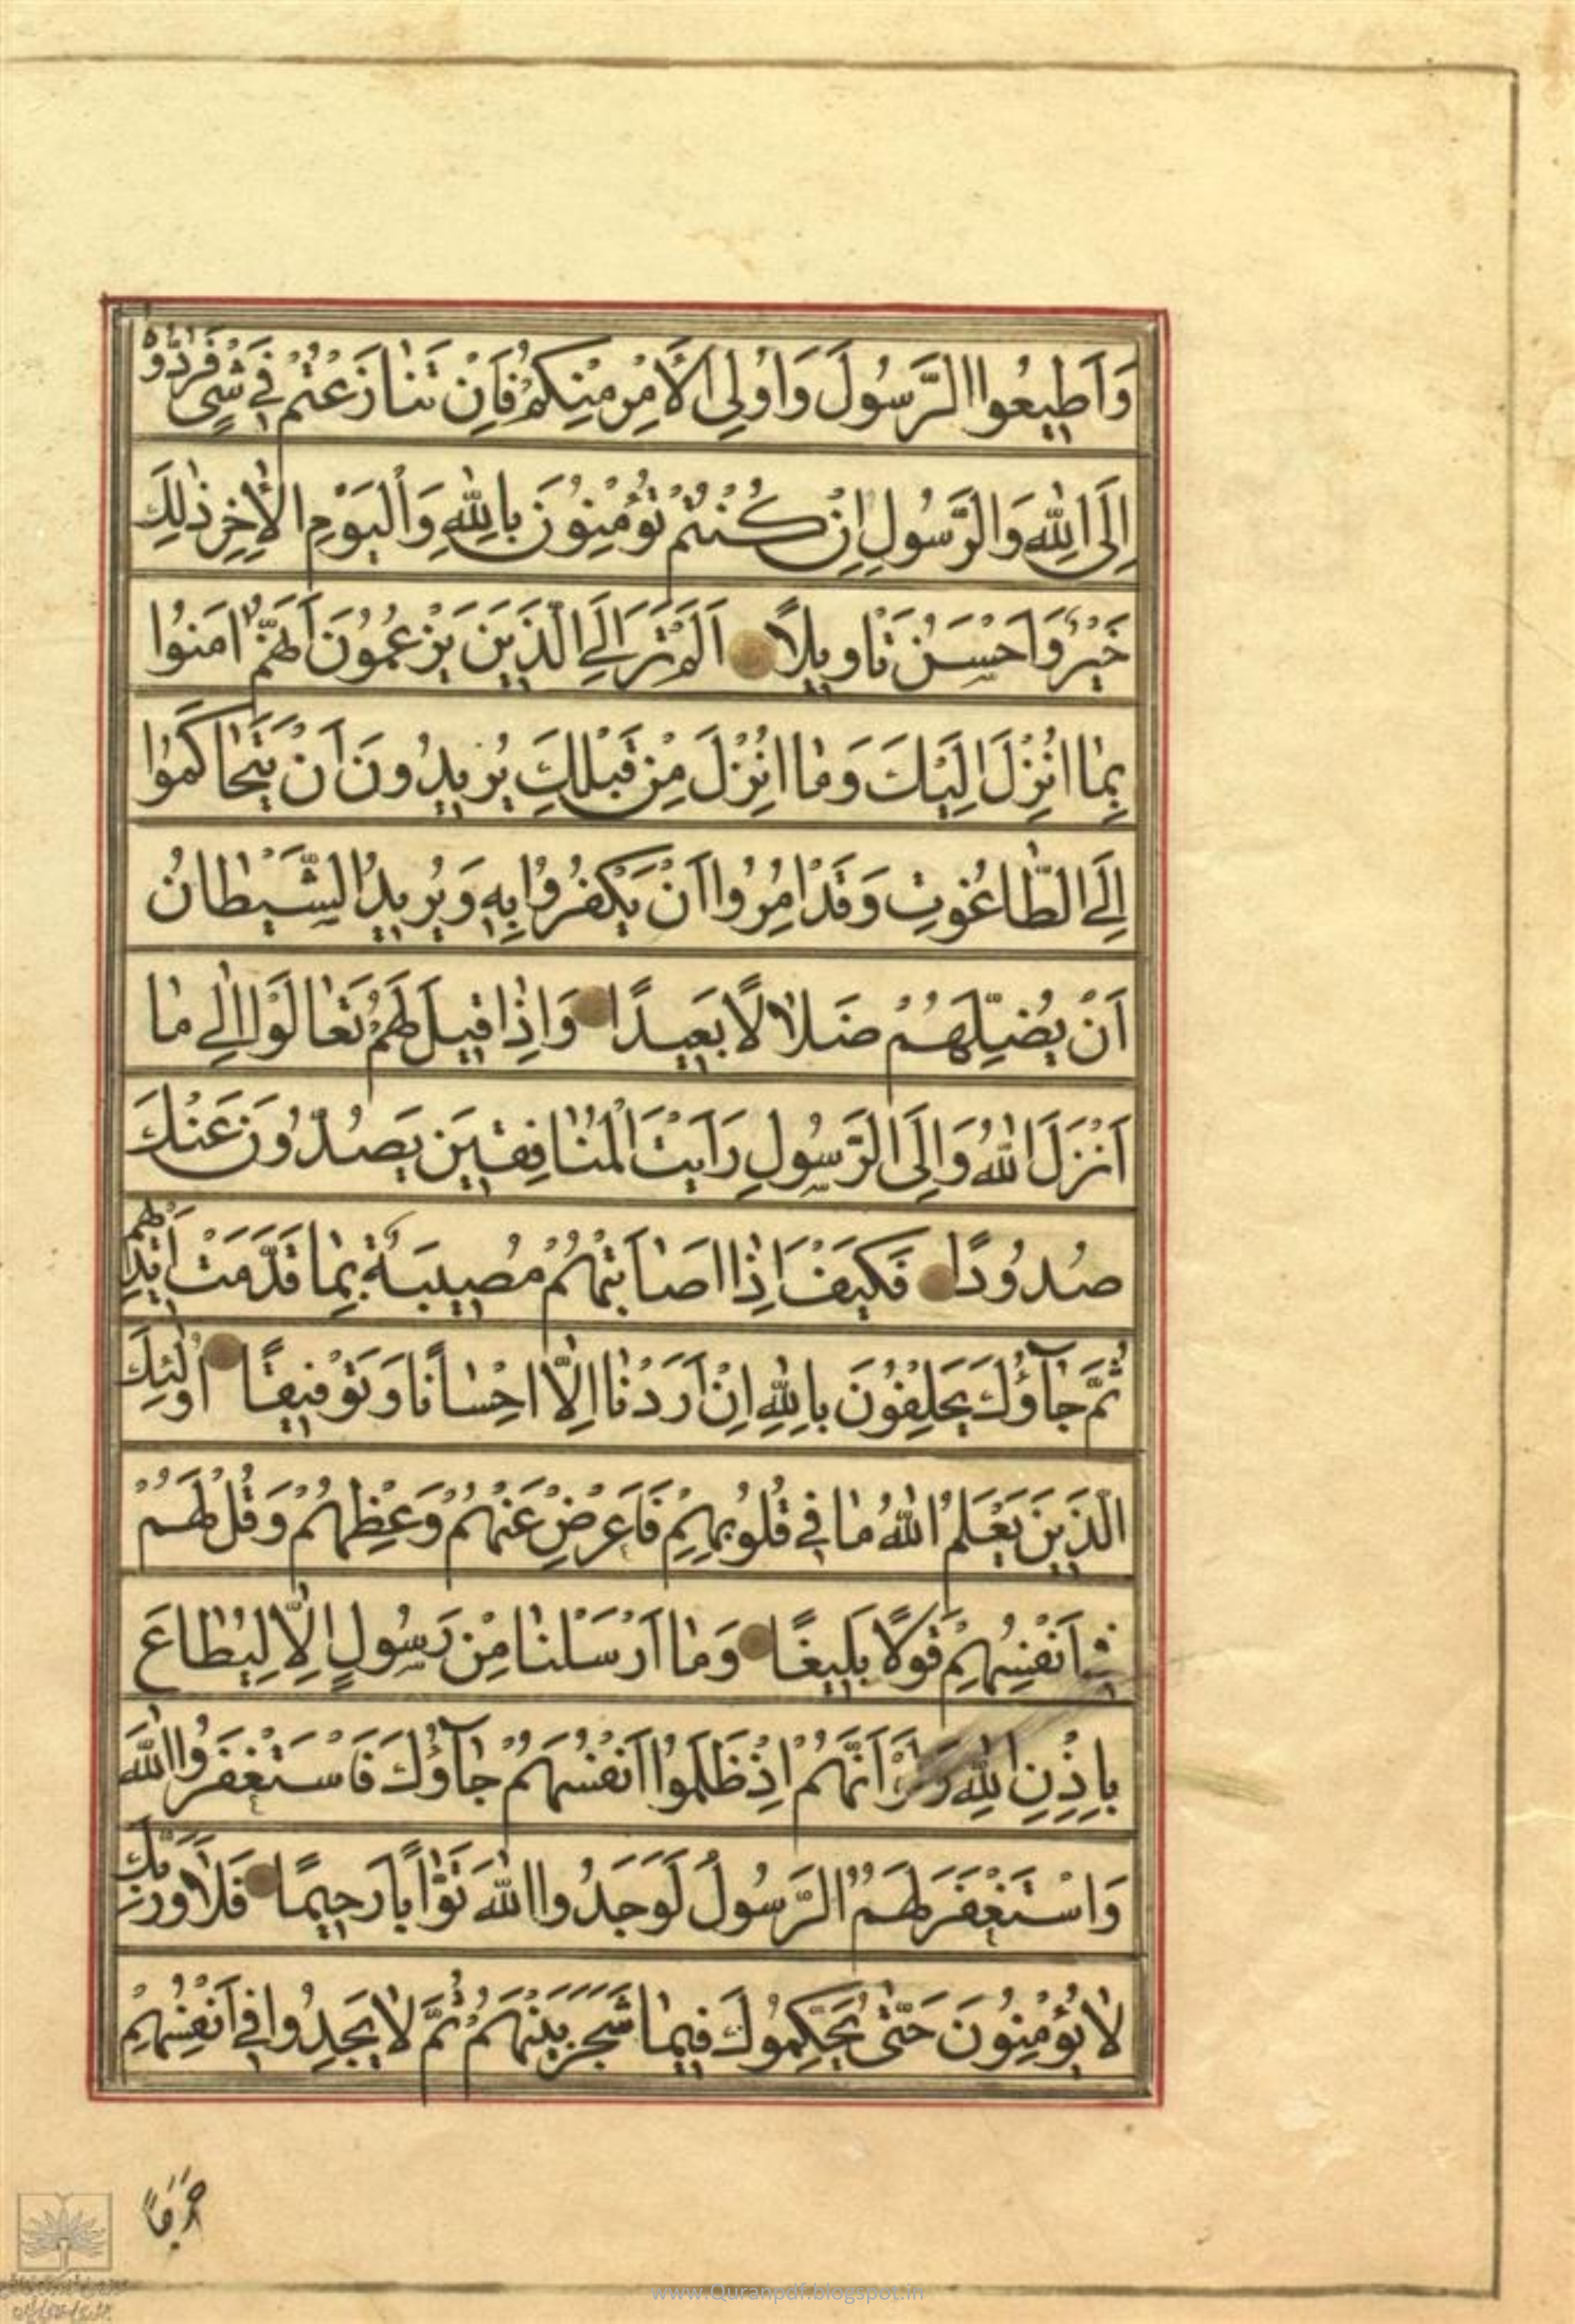 وَاَطِيعُوا الرَّسُولَ وَاُولِي الْاَمْرِ مِنْكُمْ فَاِنْ تَنٰازَعْتُمْ فِي شَيْءٍ فَرُدُّوهُ
اِلَى اللّٰهِ وَالرَّسُولِ اِنْ كُنْتُمْ تُؤْمِنُونَ بِاللّٰهِ وَالْيَوْمِ الْاٰخِرِ ذٰلِكَ
خَيْرٌ وَاَحْسَنُ تَاْوِيلًا اَلَمْ تَرَ اِلَى الَّذِينَ يَزْعُمُونَ اَنَّهُمْ اٰمَنُوا
بِمٰا اُنْزِلَ اِلَيْكَ وَمٰا اُنْزِلَ مِنْ قَبْلِكَ يُرِيدُونَ اَنْ يَتَحٰاكَمُوا
اِلَى الطّٰاغُوتِ وَقَدْ اُمِرُوا اَنْ يَكْفُرُوا بِهِ وَيُرِيدُ الشَّيْطٰانُ
اَنْ يُضِلَّهُمْ ضَلٰالًا بَعِيدًا وَاِذٰا قِيلَ لَهُمْ تَعٰالَوْا اِلٰى مٰا
اَنْزَلَ اللّٰهُ وَاِلَى الرَّسُولِ رَاَيْتَ الْمُنٰافِقِينَ يَصُدُّونَ عَنْكَ
صُدُودًا فَكَيْفَ اِذٰا اَصٰابَتْهُمْ مُصِيبَةٌ بِمٰا قَدَّمَتْ اَيْدِيهِمْ
ثُمَّ جٰآؤُكَ يَحْلِفُونَ بِاللّٰهِ اِنْ اَرَدْنٰا اِلّٰا اِحْسٰانًا وَتَوْفِيقًا اُولٰئِكَ
الَّذِينَ يَعْلَمُ اللّٰهُ مٰا فِي قُلُوبِهِمْ فَاَعْرِضْ عَنْهُمْ وَعِظْهُمْ وَقُلْ لَهُمْ
فِي اَنْفُسِهِمْ قَوْلًا بَلِيغًا وَمٰا اَرْسَلْنٰا مِنْ رَسُولٍ اِلّٰا لِيُطٰاعَ
بِاِذْنِ اللّٰهِ وَلَوْ اَنَّهُمْ اِذْ ظَلَمُوا اَنْفُسَهُمْ جٰآؤُكَ فَاسْتَغْفَرُوا اللّٰهَ
وَاسْتَغْفَرَ لَهُمُ الرَّسُولُ لَوَجَدُوا اللّٰهَ تَوّٰابًا رَحِيمًا فَلٰا وَرَبِّكَ
لٰا يُؤْمِنُونَ حَتّٰى يُحَكِّمُوكَ فِيمٰا شَجَرَ بَيْنَهُمْ ثُمَّ لٰا يَجِدُوا فِي اَنْفُسِهِمْ
حَرَجًا
www.Quranpdf.blogspot.in